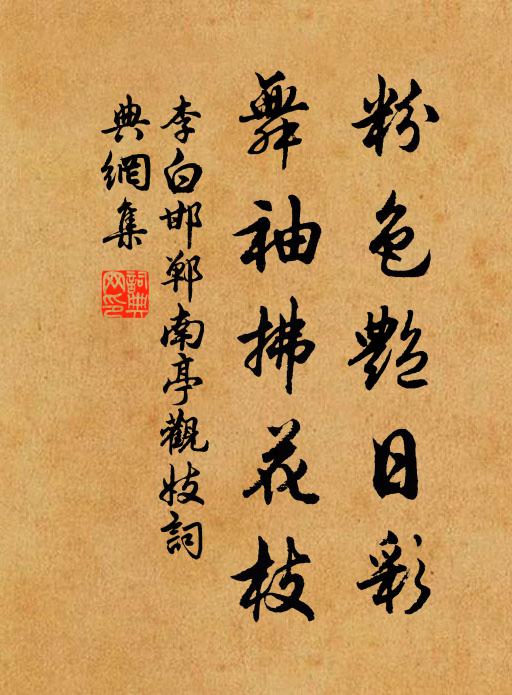 粉色艷日彩
舞袖拂花枝
李白邯鄲南亭觀妓詞
典網集
詞典
网印